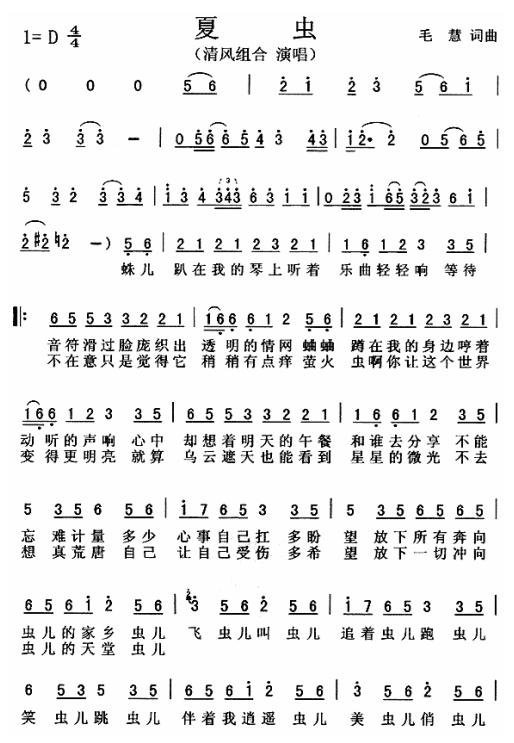 夏 虫
1= D 4/4
(清风组合 演唱)
毛 慧 词曲
(0 0 0 5 6 | 2 1 2 3 5 6 1 |
2 3 3 3 - | 0 5 6 6 5 4 3 4 3 | 1 2· 2 0 5 6 5 |
5 3 2 3 3 4 | 1 3 4 3 4 3 6 3 1 1 | 0 2 3 1 6 5 3 2 3 6 1 |
2 #2 ♮2 -) 5 6 | 2 1 2 1 2 3 2 1 | 1 6 1 2 3 3 5 |
蛛儿 趴在我的琴上听着 乐曲轻轻响 等待
6 5 5 3 3 2 2 1 | 1 6 6 6 1 2 5 5 | 2 1 2 1 2 3 2 1 |
音符滑过脸庞织出 透明的情网 蛐蛐 蹲在我的身边哼着
不在意只是觉得它 稍稍有点痒 萤火 虫啊你让这个世界
1 6 6 1 2 3 3 5 | 6 5 5 3 3 2 2 1 | 1 6 6 1 2 3 3 5 |
动听的声响 心中 却想着明天的午餐 和谁去分享 不能
变得更明亮 就算 乌云遮天也能看到 星星的微光 不去
5 3 5 6 5 6 | 1 7 6 5 3 5 | 5 3 5 6 5 6 5 |
忘 难计量 多少 心事自己扛 多盼 望 放下所有奔向
想 真荒唐 自己 让自己受伤 多希 望 放下一切冲向
6 5 6 1 2 5 6 | 3 5 6 2 5 6 | 1 7 6 5 3 5 |
虫儿的家乡 虫儿 飞 虫儿叫 虫儿 追着虫儿跑 虫儿
虫儿的天堂 虫儿
6 5 3 5 3 5 | 1 6 1 6 2 5 6 | 3 5 6 2 5 6 |
笑 虫儿跳 虫儿 伴着我逍遥 虫儿 美 虫儿俏 虫儿